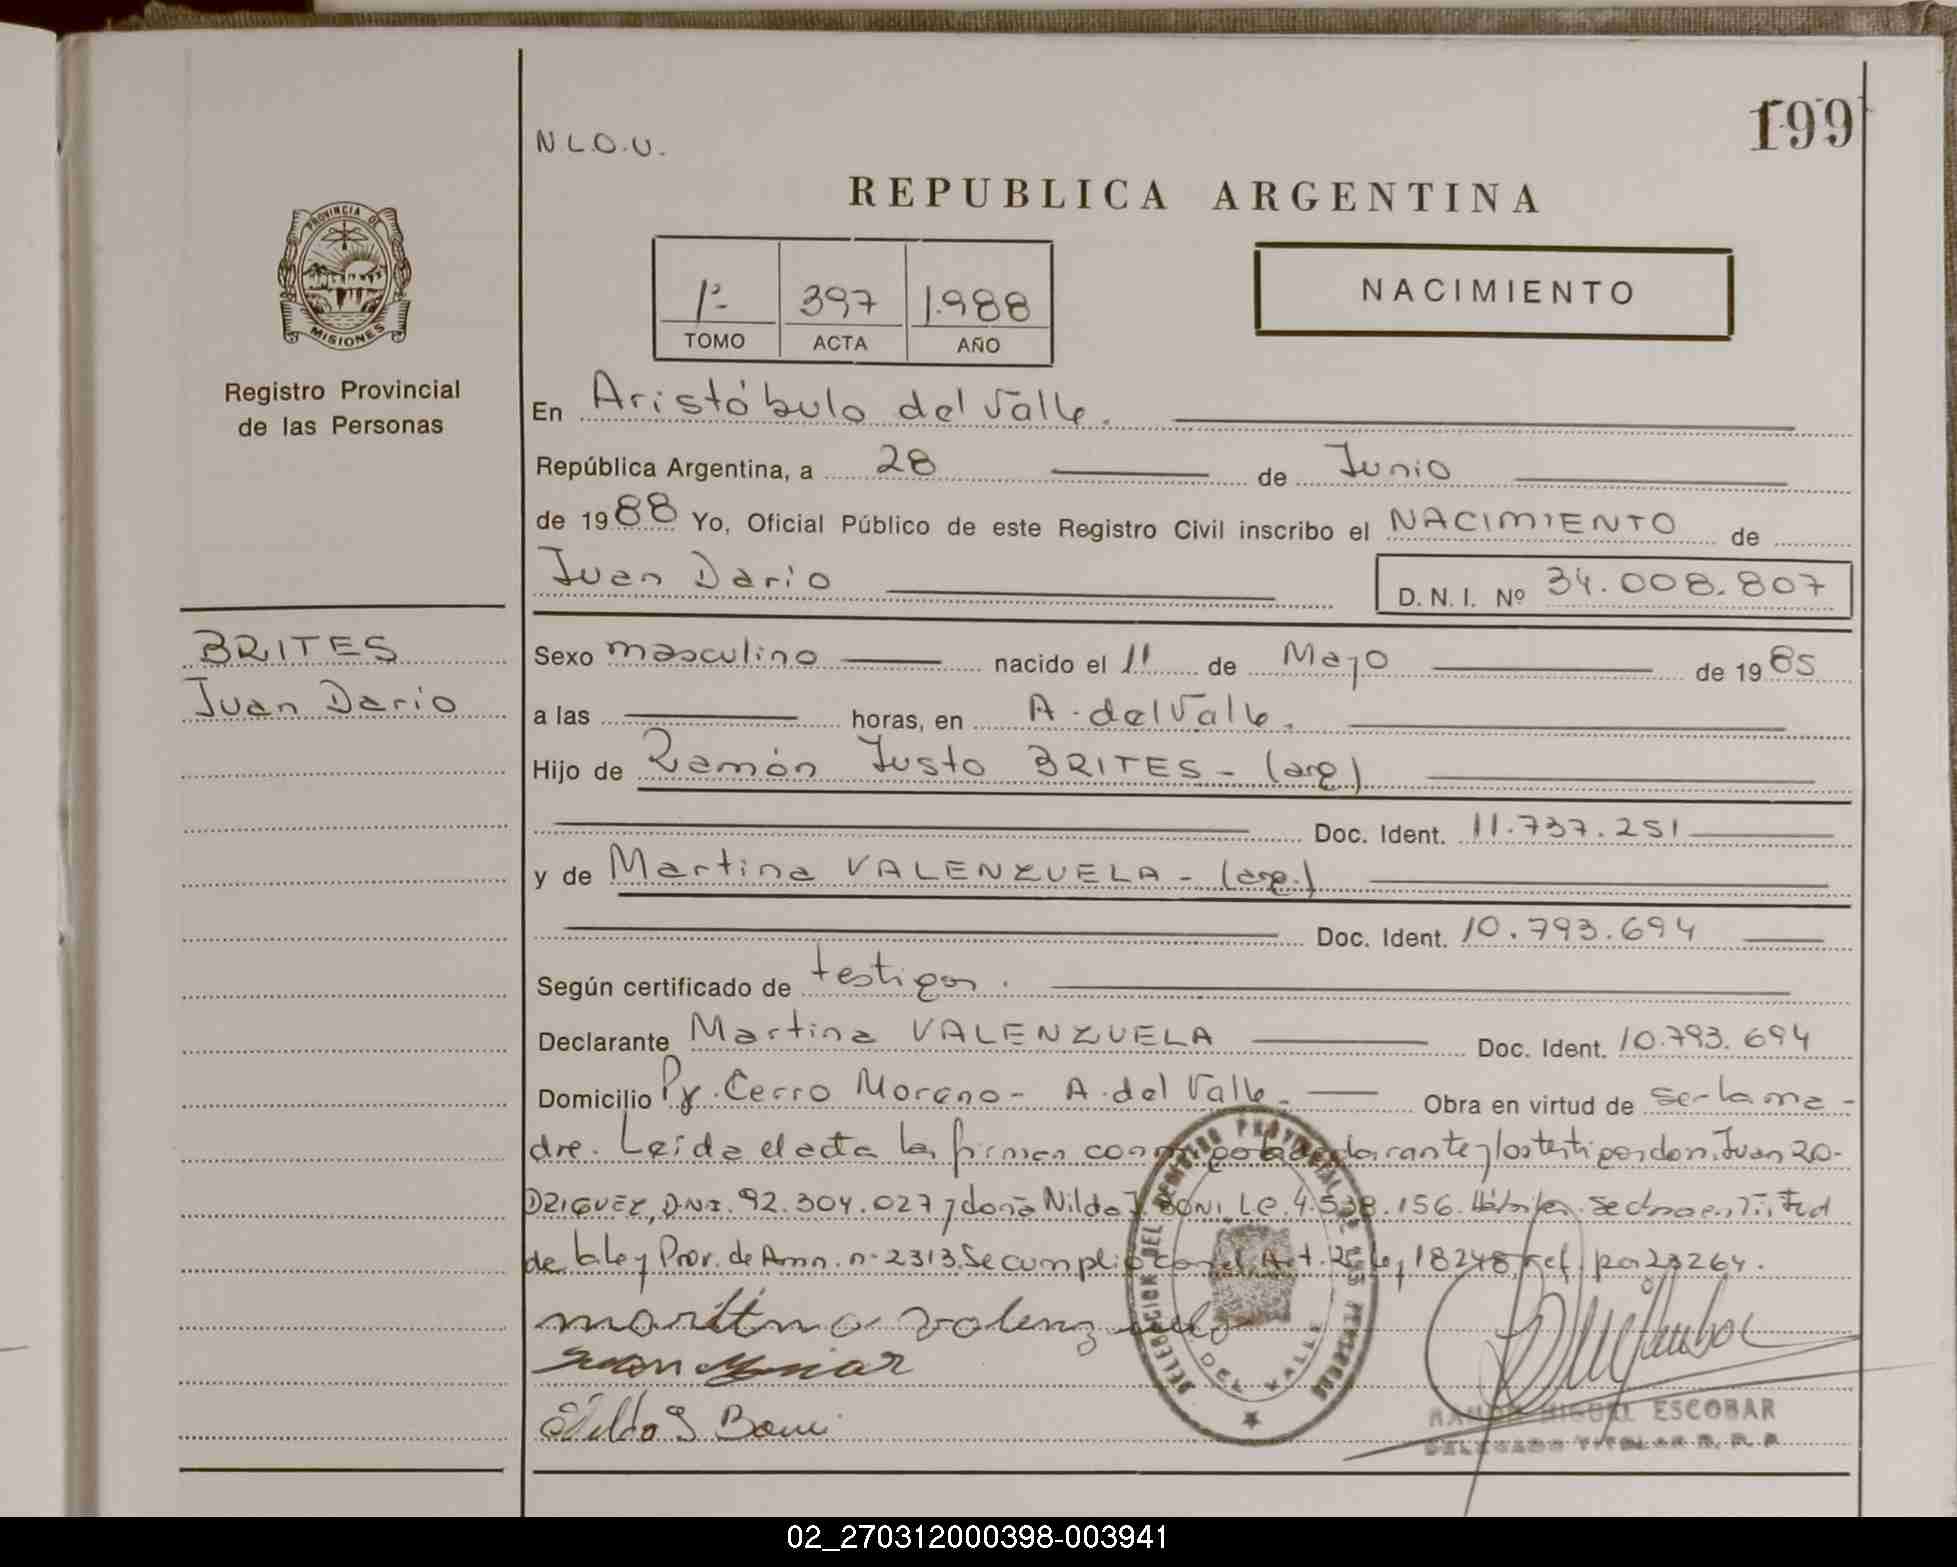 199
N.L.O.U.
REPUBLICA ARGENTINA
PROVINCIA DE
MISIONES
Registro Provincial
de las Personas
1º- 397 1.988
TOMO ACTA AÑO
NACIMIENTO
En Aristóbulo del Valle.
República Argentina, a 28 de Junio
de 1988 Yo, Oficial Público de este Registro Civil inscribo el NACIMIENTO de
Juan Dario D. N. I. Nº 34.008.807
BRITES
Juan Dario
Sexo masculino nacido el 11 de Mayo de 1985
a las horas, en A. del Valle.
Hijo de Ramón Justo BRITES - (arg)
Doc. Ident. 11.737.251
y de Martina VALENZUELA - (arg.)
Doc. Ident. 10.793.694
Según certificado de testigos.
Declarante Martina VALENZUELA Doc. Ident. 10.793.694
Domicilio Pje. Cerro Moreno - A. del Valle - Obra en virtud de ser la ma-
dre. Leída el acta la firman conmigo la declarante y los testigos don Juan RO-
DRIGUEZ, D.N.I. 92.304.027 y doña Nilda J. BONI, LC. 4.538.156. Se en virtud
de la ley Prov. de Amn. n- 2313. Se cumplió con el Art. 2 Ley 18248, ref. por 23264.
martina valenzuela
Juan
Nilda J Boni
DELEGACION DEL REGISTRO PROVINCIAL DE LAS PERSONAS
DEL VALLE
RAMON MIGUEL ESCOBAR
DELEGADO TITULAR R. P. P.
02_270312000398-003941